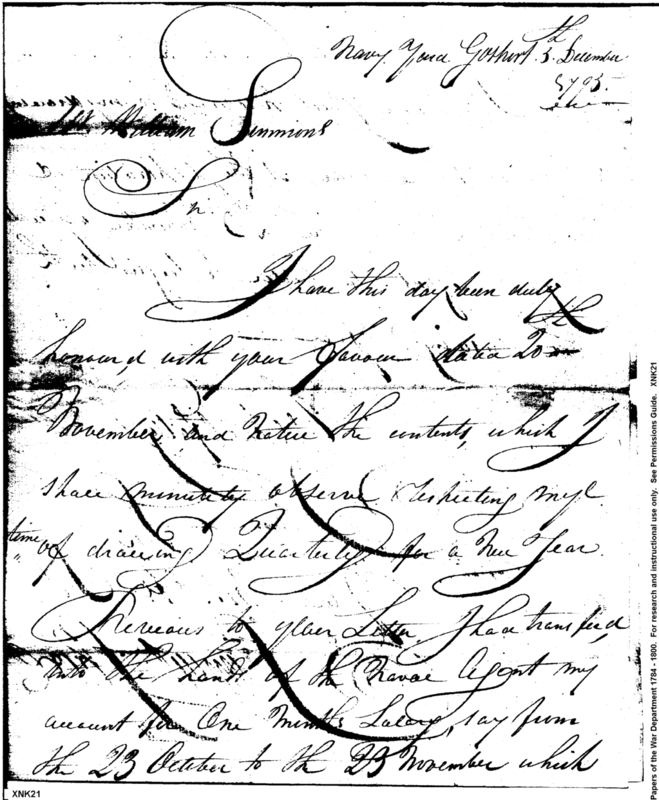 Navy Yard Gosport 5th December
1795.
Mr William Simmons
Sir.
I have this day been duly
honour,d with your favour dated 20th
November, and Notice the contents, which I
shall minutely observe respecting my
time of drawing Quarterly for a New Year.
Previous to your Letter, I had transfer,d
into the hands of the Naval Agent my
account for One Months Salary, say from
the 23 October to the 23 November which
XNK21
Papers of the War Department 1784 - 1800. For research and instructional use only. See Permissions Guide. XNK21